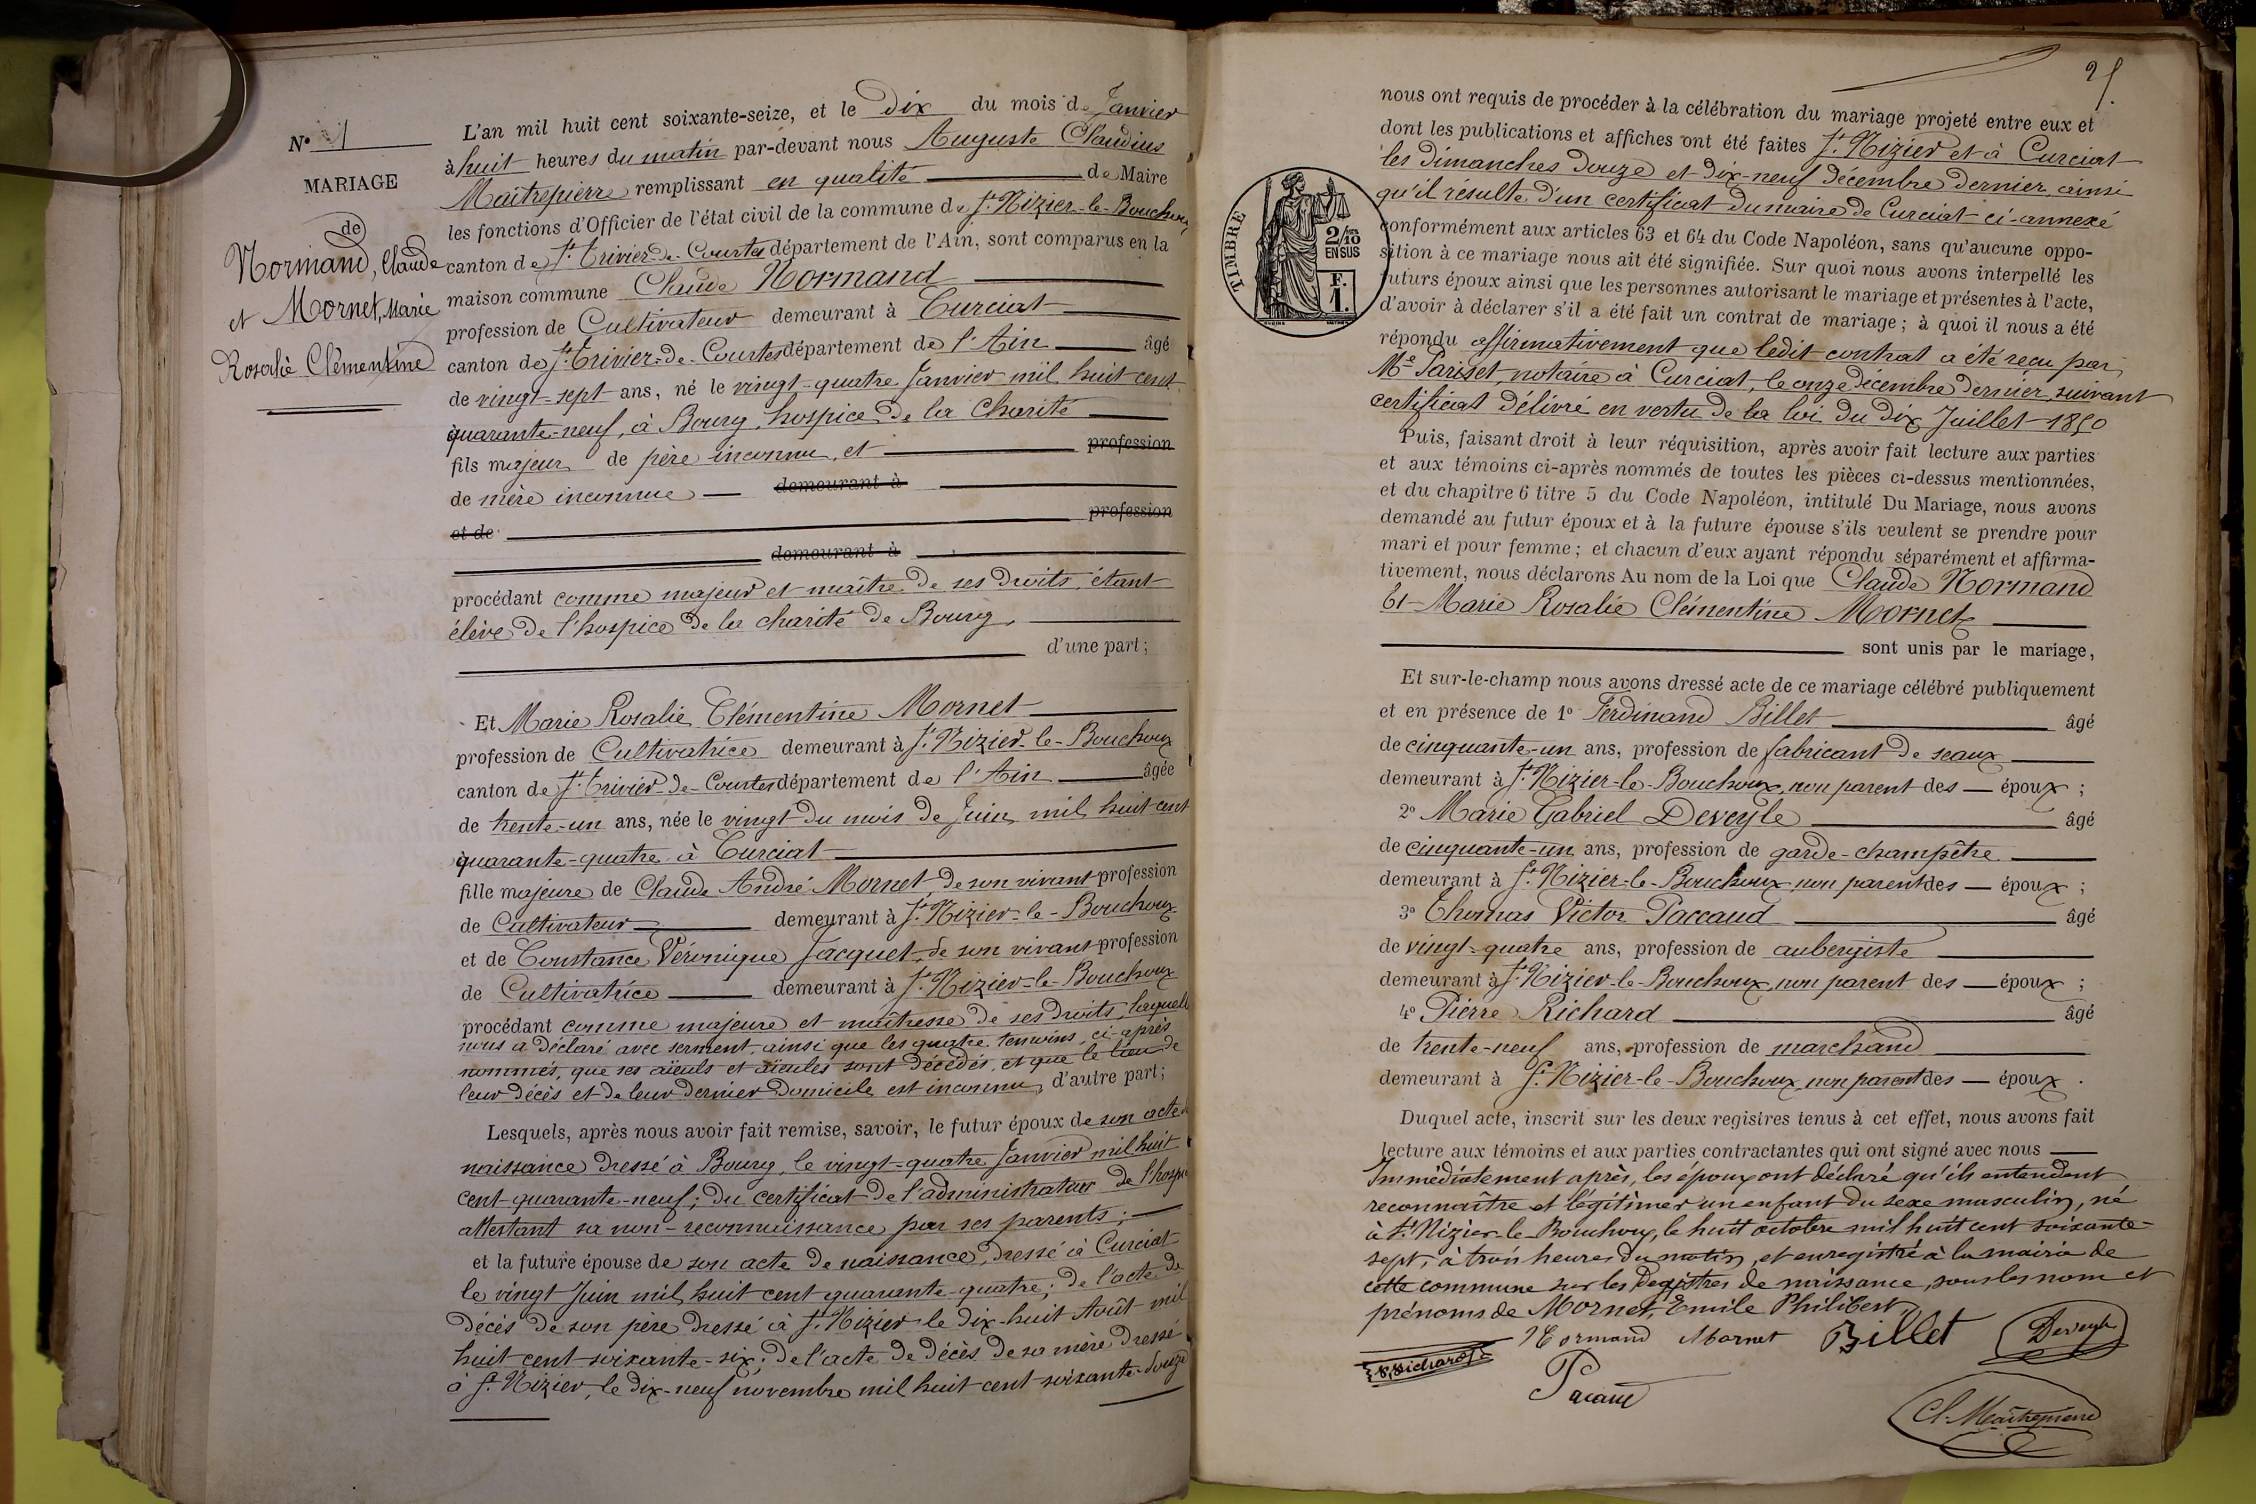 N° 1
MARIAGE
de
Normand, Claude
et Mornet, Marie
Rosalie Clémentine
L'an mil huit cent soixante-seize, et le dix du mois de Janvier
à huit heures du matin par-devant nous Auguste Claudius
Maîtrepierre remplissant en qualité de Maire
les fonctions d'Officier de l'état civil de la commune de St Nizier-le-Bouchoux,
canton de St Trivier-de-Courtes département de l'Ain, sont comparus en la
maison commune Claude Normand
profession de Cultivateur demeurant à Curciat
canton de St Trivier-de-Courtes département de l'Ain âgé
de vingt-sept ans, né le vingt-quatre Janvier mil huit cent
quarante-neuf, à Bourg, hospice de la Charité
fils majeur de père inconnu, et profession
de mère inconnue demeurant à
et de profession
demeurant à
procédant comme majeur et maître de ses droits, étant
élève de l'hospice de la charité de Bourg,
d'une part;
Et Marie Rosalie Clémentine Mornet
profession de Cultivatrice demeurant à St Nizier-le-Bouchoux
canton de St Trivier-de-Courtes département de l'Ain âgée
de trente-un ans, née le vingt du mois de Juin mil huit cent
quarante-quatre à Curciat
fille majeure de Claude André Mornet, de son vivant profession
de Cultivateur demeurant à St Nizier-le-Bouchoux
et de Constance Véronique Jacquet, de son vivant profession
de Cultivatrice demeurant à St Nizier-le-Bouchoux
procédant comme majeure et maîtresse de ses droits, laquelle
nous a déclaré avec serment, ainsi que les quatre temoins, ci-après
nommés, que ses aïeuls et aïeules sont décédés, et que le lieu de
leur décès et de leur dernier domicile est inconnu, d'autre part;
Lesquels, après nous avoir fait remise, savoir, le futur époux de son acte de
naissance dressé à Bourg, le vingt-quatre Janvier mil huit
cent quarante-neuf; du certificat de l'administrateur de l'hospice
attestant sa non-reconnaissance par ses parents;
et la future épouse de son acte de naissance, dressé à Curciat
le vingt Juin mil huit cent quarante-quatre; de l'acte de
décès de son père dressé à St Nizier le dix-huit Août mil
huit cent soixante-six; de l'acte de décès de sa mère dressé
à St Nizier, le dix-neuf novembre mil huit cent soixante-douze
25
TIMBRE
2/10
EN SUS
F.
1.
nous ont requis de procéder à la célébration du mariage projeté entre eux et
dont les publications et affiches ont été faites St Nizier et à Curciat
les dimanches douze et dix-neuf Décembre dernier, ainsi
qu'il résulte d'un certificat du maire de Curciat ci-annexé
conformément aux articles 63 et 64 du Code Napoléon, sans qu'aucune oppo-
sition à ce mariage nous ait été signifiée. Sur quoi nous avons interpellé les
futurs époux ainsi que les personnes autorisant le mariage et présentes à l'acte,
d'avoir à déclarer s'il a été fait un contrat de mariage; à quoi il nous a été
répondu affirmativement que ledit contrat a été reçu par
Me Pariset, notaire à Curciat, le onze décembre dernier, suivant
certificat délivré en vertu de la loi du dix Juillet 1850
Puis, faisant droit à leur réquisition, après avoir fait lecture aux parties
et aux témoins ci-après nommés de toutes les pièces ci-dessus mentionnées,
et du chapitre 6 titre 5 du Code Napoléon, intitulé Du Mariage, nous avons
demandé au futur époux et à la future épouse s'ils veulent se prendre pour
mari et pour femme; et chacun d'eux ayant répondu séparément et affirma-
tivement, nous déclarons Au nom de la Loi que Claude Normand
Et Marie Rosalie Clémentine Mornet
sont unis par le mariage,
Et sur-le-champ nous avons dressé acte de ce mariage célébré publiquement
et en présence de 1° Ferdinand Billet âgé
de cinquante-un ans, profession de fabricant de seaux
demeurant à St Nizier-le-Bouchoux, non parent des époux;
2° Marie Gabriel Deveyle âgé
de cinquante-un ans, profession de garde-champêtre
demeurant à St Nizier-le-Bouchoux non parent des époux;
3° Thomas Victor Paccaud âgé
de vingt-quatre ans, profession de aubergiste
demeurant à St Nizier-le-Bouchoux, non parent des époux;
4° Pierre Richard âgé
de trente-neuf ans, profession de marchand
demeurant à St Nizier-le-Bouchoux non parent des époux.
Duquel acte, inscrit sur les deux registres tenus à cet effet, nous avons fait
lecture aux témoins et aux parties contractantes qui ont signé avec nous
Immédiatement après, les époux ont déclaré qu'ils entendent
reconnaître et légitimer un enfant du sexe masculin, né
à St Nizier-le-Bouchoux, le huit octobre mil huit cent soixante-
sept, à trois heures du matin, et enregistré à la mairie de
cette commune sur les Registres de naissance, sous les nom et
prénoms de Mornet, Emile Philibert,
Normand Mornet Billet Deveyle
P. Richard
Pacaud
Cl. Maîtrepierre